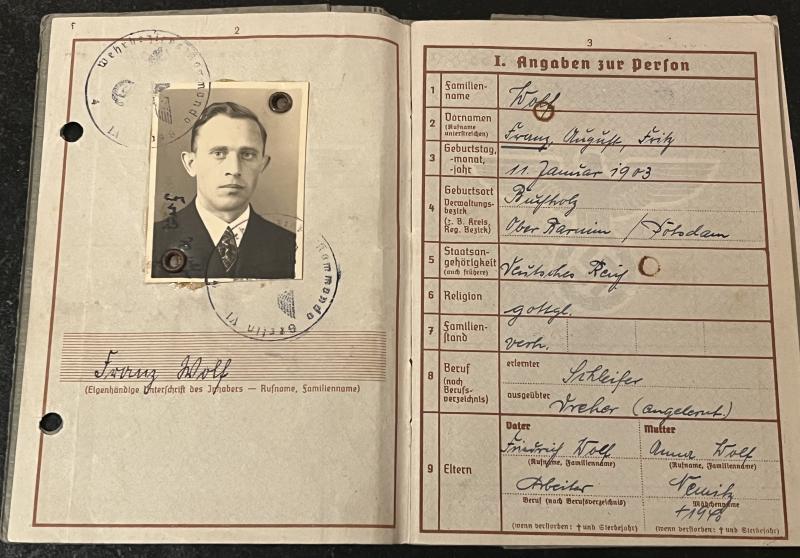 2
Wehrbezirkskommando
Berlin VI
4
Kommando
Berlin VI
Franz Wolf
(Eigenhändige Unterschrift des Inhabers — Rufname, Familienname)
3
I. Angaben zur Person
1 Familien-
name
Wolf
2 Vornamen
(Rufname
unterstreichen)
Franz, August, Fritz
3 Geburtstag,
-monat,
-jahr
11. Januar 1903
4 Geburtsort
Verwaltungs-
bezirk
(z. B. Kreis,
Reg. Bezirk)
Buchholz
Ober Barnim / Potsdam
5 Staatsan-
gehörigkeit
(auch frühere)
Deutsches Reich
6 Religion
gottgl.
7 Familien-
stand
verh.
8 Beruf
(nach
Berufs-
verzeichnis)
erlernter
Schleifer
ausgeübter
Dreher (angelernt.)
9 Eltern
Vater
Friedrich Wolf
(Rufname, Familienname)
Arbeiter
Beruf (nach Berufsverzeichnis)
(wenn verstorben: † und Sterbejahr)
Mutter
Anna Wolf
(Rufname, Familienname)
Nemitz
Mädchenname
(wenn verstorben: † und Sterbejahr)